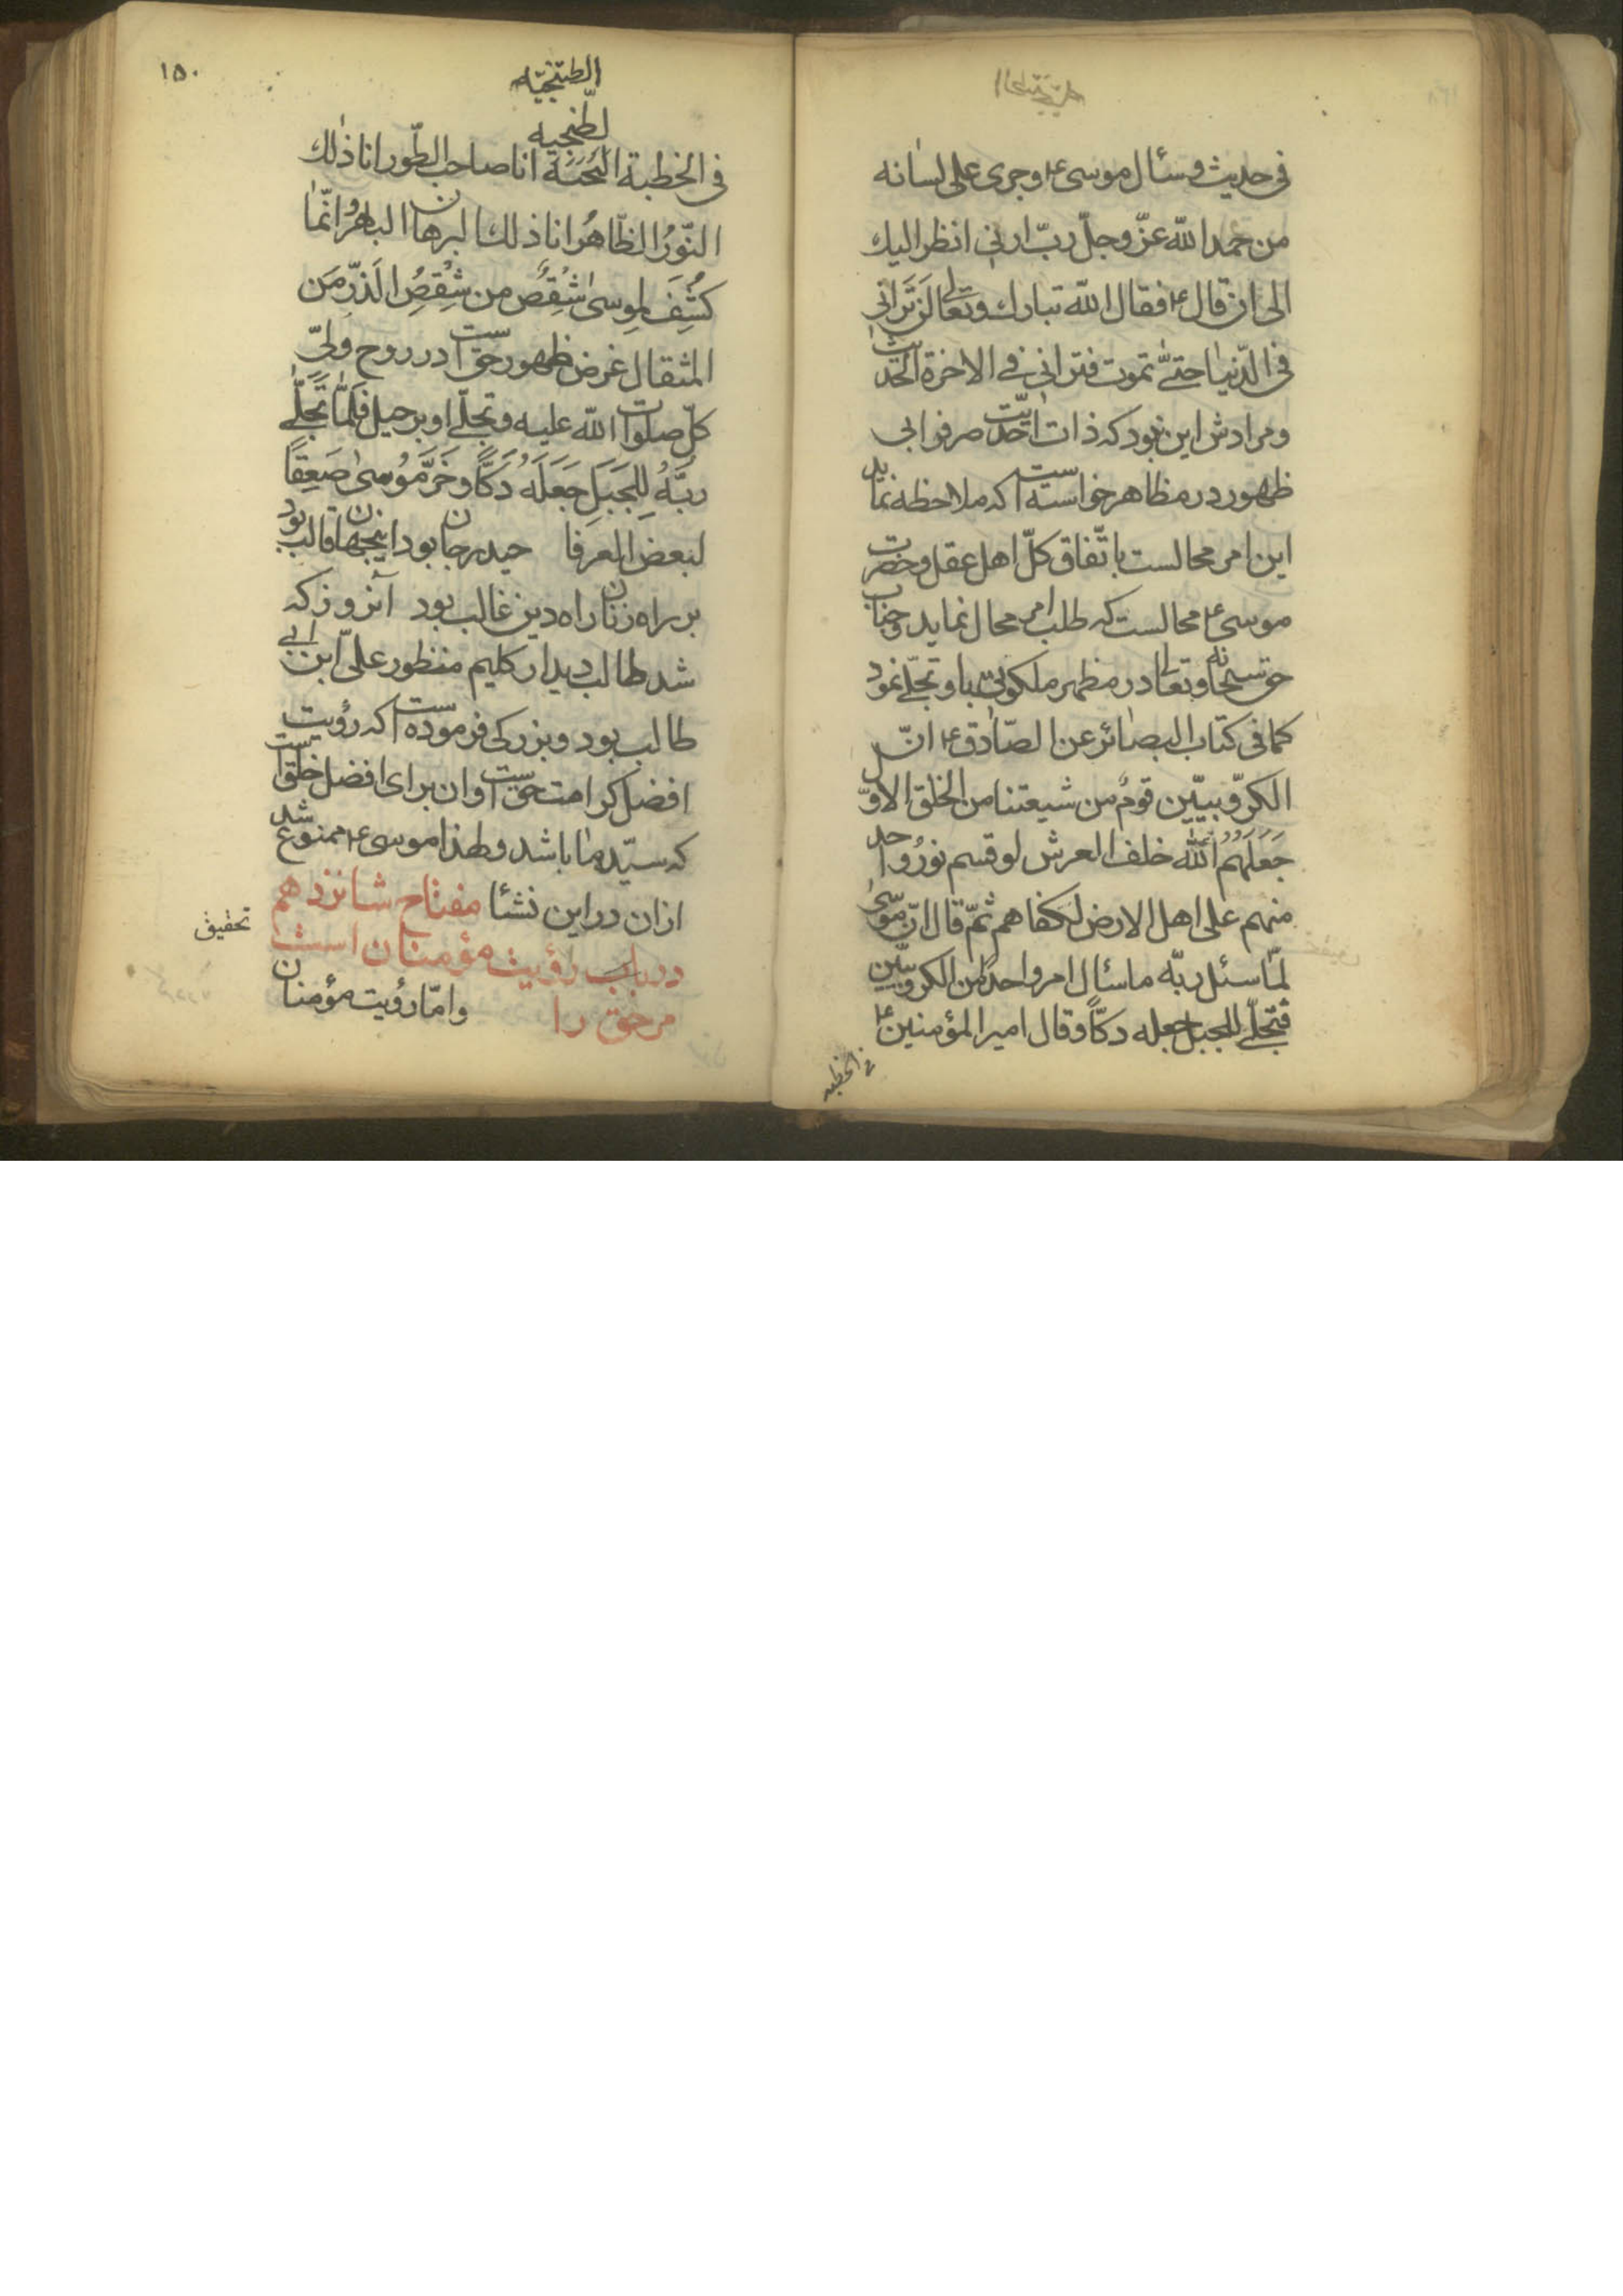 فی حدیث و سئال موسی ع و جری علی لسانه
من حمد الله عزّ وجلّ ربّ ارنی انظر الیك
الی ان قال ع فقال الله تبارك وتعالی لَن تَرانی
فی الدّنیا حتّی تموت فترانی فی الاخرة الحدیث
و مرادش این نبود که ذات احدیّت صرفرا بی
ظهور در مظاهر خواسته است که ملاحظه نماید
این امر محالست باتّفاق کلّ اهل عقل و حضرت
موسی ع محالست که طلب امر محال نماید و جناب
حق سبحانه و تعالی در مظهر ملکوتی باو تجلّی نمود
کما فی کتاب البصائر عن الصّادق ع انّ
الکرّوبییّن قومٌ من شیعتنا من الخلق الاوّل
جَعَلَهُمُ اللهُ خلف العرش لو قسم نورُ واحد
منهم علی اهل الارض لکفاهم ثمّ قال انّ موسی
لمّا سئل ربّه ما سئال امر واحداً من الکروبیّین
فتجلّی للجبل جعله دکّاً و قال امیر المؤمنین ع
فی الخطبه
۱۵۰
الطتنجیّه
لطّنجیه
فی الخطبة انا صاحب الطّور انا ذٰلك
النّورُ الظّاهرُ انا ذلك البرهان الباهرُ انّما
کُشِفَ لموسیٰ شِقِصٌ من شِقِصُ الَذرّ مَن
المثقال غرض ظهور حق است در روح ولیّ
کلّ صلوات الله علیه و تجلّی او بر جبل فَلَمّا تَجَلّی
رَبَّهُ لِلجَبَلِ جَعَلَهُ دَکّاً و خَرَّ مُوسیٰ صَعِقاً
لبعض العرفا حیدر جان بود اینجهان قالب بود
بر راه زنان راه دین غالب بود آنروز که
شد طالب دیدار کلیم منظور علیّ ابن ابی
طالب بود و بزرکی فرموده است که رؤیت
افضل کرامت حق است و ان برای افضل خلق است
که سیّد ما باشد و لهذا موسی ع ممنوع شد
ازان در این نشئا مفتاح شانزدهم
در باب رؤیت مؤمنان است
مر حق را و امّا رؤیت مؤمنان
تحقیق